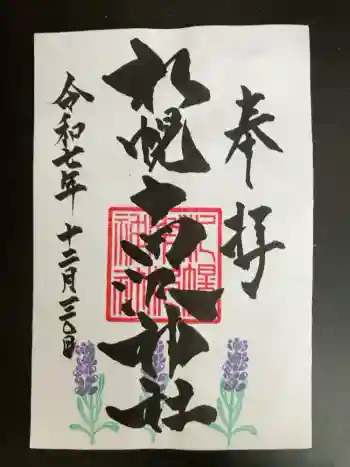 奉拝
札幌南沢神社
令和七年 十二月三十日